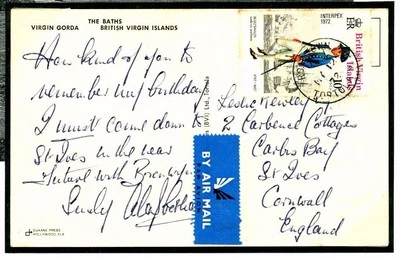 THE BATHS
VIRGIN GORDA BRITISH VIRGIN ISLANDS
How kind of you to
remember my birthday
I must come down to
St Ives in the near
future with
DUKANE PRESS
HOLLYWOOD, FLA
INTERPEX
1972
British Virgin
Islands
BY AIR MAIL
PAR AVION
Leslie
2 Carbence Cottages
Carbis Bay
St Ives
Cornwall
England